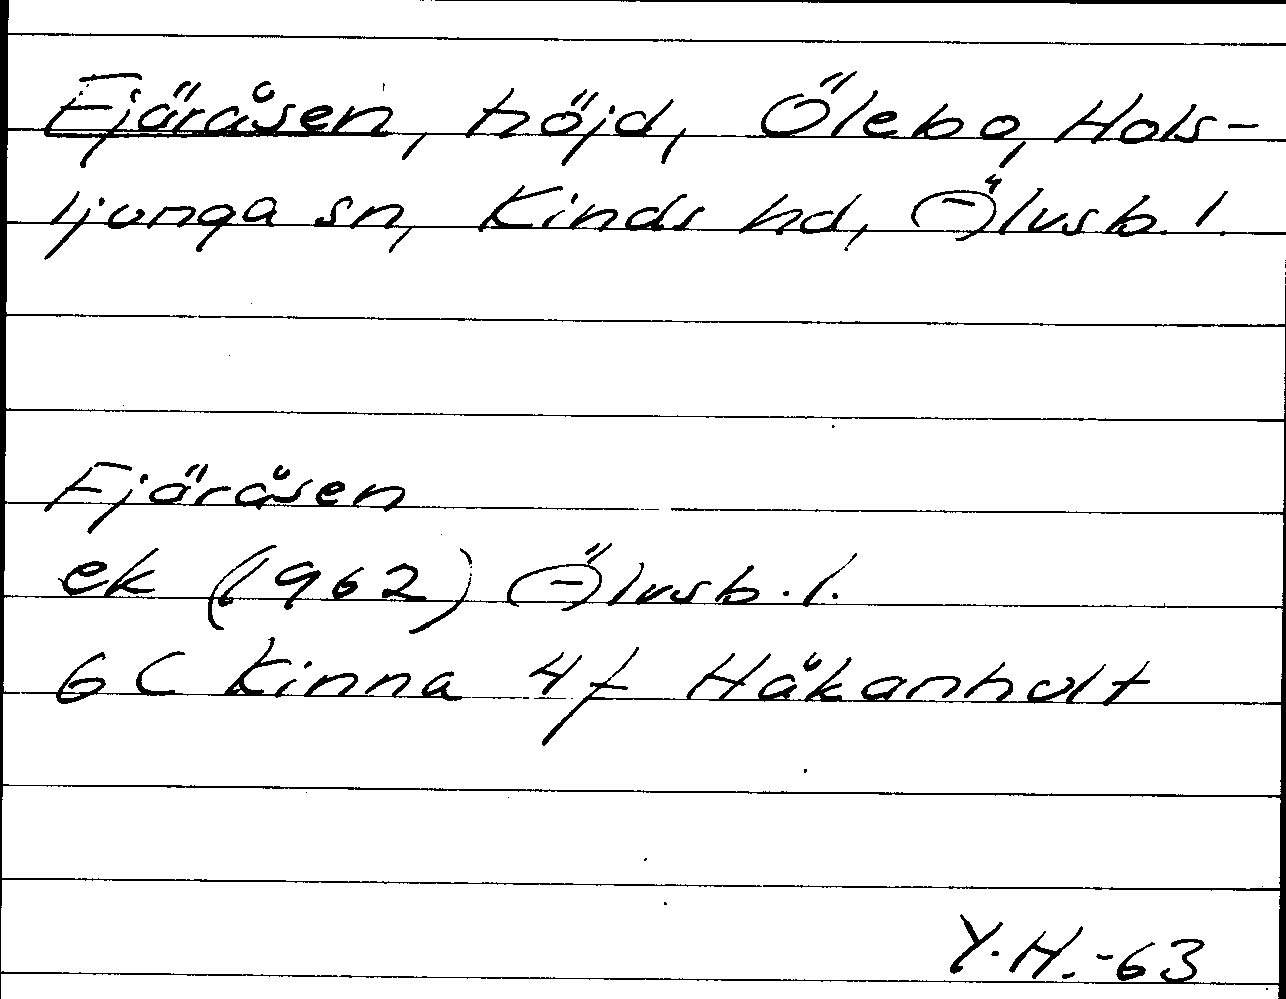 Fjäråsen, höjd, Ölebo, Hols-
ljunga sn, Kinds hd, Älvsb. l.
Fjäråsen
ek (1962) Älvsb. l.
6 C Kinna 4 f Håkanhult
Y.H.-63